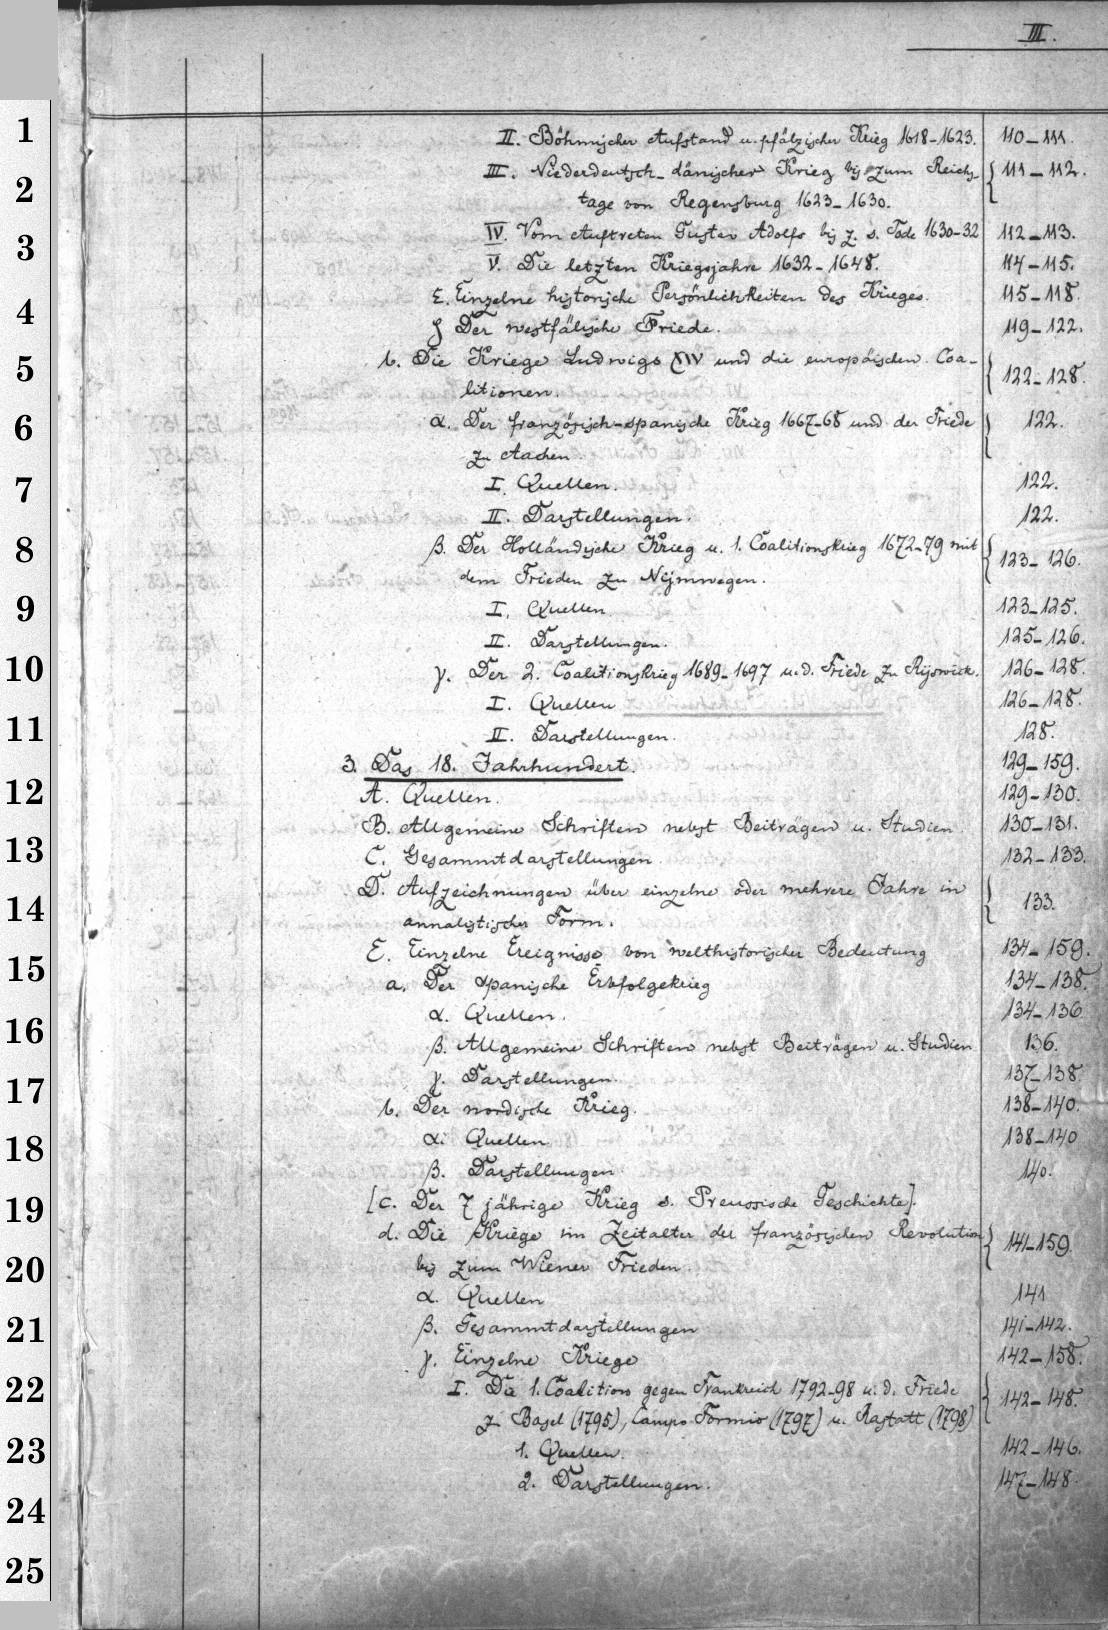 III.
1
II. Böhmischer Aufstand u. pfälzischer Krieg 1618-1623. 110-111.
2
III. Niederdeutsch-dänischer Krieg bis zum Reichs- 111-112.
tage von Regensburg 1623-1630.
3
IV. Vom Auftreten Gustav Adolfs bis z. s. Tode 1630-32 112-113.
V. Die letzten Kriegsjahre 1632-1648. 114-115.
ε. Einzelne historische Persönlichkeiten des Krieges. 115-118.
4
ζ Der westfälische Friede. 119-122.
5
b. Die Kriege Ludwigs XIV und die europäischen Coa- 122-128.
litionen.
6
α. Der französisch-spanische Krieg 1667-68 und der Friede 122.
zu Aachen
7
I. Quellen. 122.
II. Darstellungen. 122.
8
β. Der Holländische Krieg u. 1. Coalitionskrieg 1672-79 mit 123-126.
dem Frieden zu Nijmwegen.
9
I. Quellen 123-125.
II. Darstellungen. 125-126.
10
γ. Der 2. Coalitionskrieg 1689-1697 u. d. Friede zu Rijswick. 126-128.
I. Quellen 126-128.
11
II. Darstellungen. 128.
3. Das 18. Jahrhundert. 129-159.
12
A. Quellen. 129-130.
B. Allgemeine Schriften nebst Beiträgen u. Studien 130-131.
13
C. Gesammtdarstellungen. 132-133.
D. Aufzeichnungen über einzelne oder mehrere Jahre in 133.
14
annalistischer Form.
E. Einzelne Ereignisse von welthistorischer Bedeutung 134-159.
15
a. Der spanische Erbfolgekrieg 134-138.
α. Quellen. 134-136
16
β. Allgemeine Schriften nebst Beiträgen u. Studien 136.
γ. Darstellungen. 137-138.
17
b. Der nordische Krieg. 138-140.
α. Quellen 138-140
18
β. Darstellungen 140.
19
[c. Der 7 jährige Krieg s. Preussische Geschichte].
d. Die Kriege im Zeitalter der französischen Revolution 141-159.
20
bis zum Wiener Frieden.
α. Quellen 141
21
β. Gesammtdarstellungen 141-142.
γ. Einzelne Kriege 142-158.
22
I. Die 1. Coalition gegen Frankreich 1792-98 u. d. Friede 142-148.
z. Basel (1795), Campo Formio (1797) u. Rastatt (1798)
23
1. Quellen. 142-146.
2. Darstellungen. 147-148.
24
25